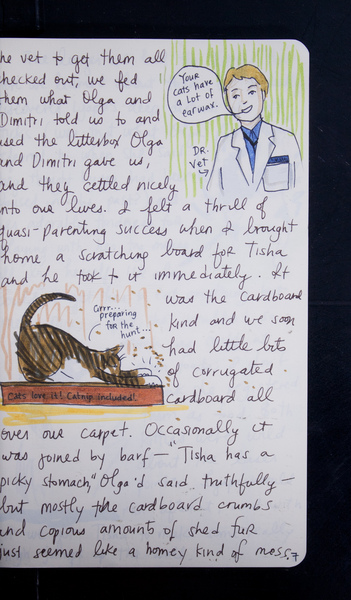 he vet to get them all
checked out, we fed
them what Olga and
Dimitri told us to and
used the litterbox Olga
and Dimitri gave us,
and they settled nicely
into our lives. I felt a thrill of
quasi-parenting success when I brought
home a scratching board for Tisha
and he took to it immediately. It
was the cardboard
kind and we soon
had little bits
of corrugated
cardboard all
over our carpet. Occasionally it
was joined by barf — "Tisha has a
picky stomach," Olga'd said, truthfully —
but mostly the cardboard crumbs
and copious amounts of shed fur
just seemed like a homey kind of mess.
7
YOUR
cats have
a lot of
earwax.
DR.
Vet
Grrr...
preparing
for the
hunt...
Cats love it! Catnip included!